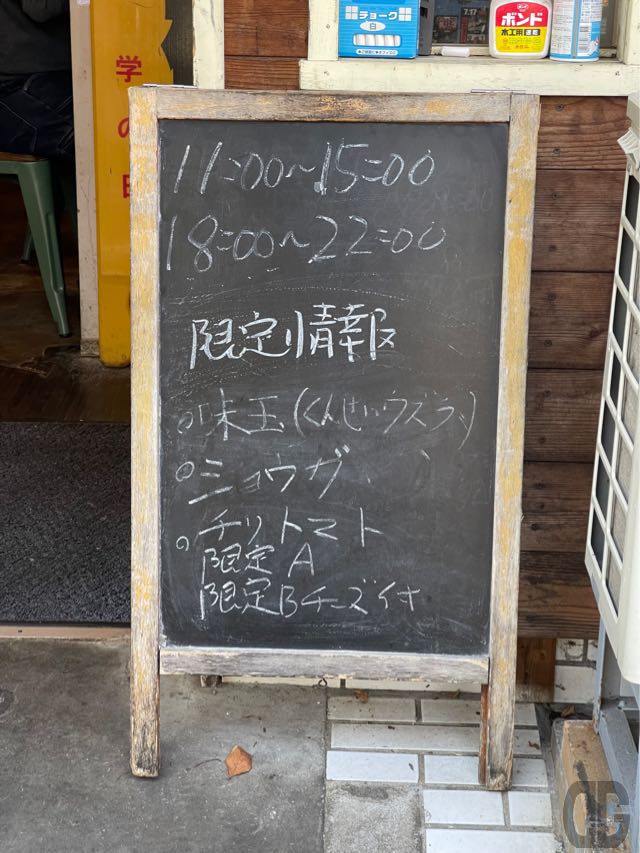 チョーク
白
7.17
ボンド
木工用 速乾
学
の
11:00~15:00
18:00~22:00
限定情報
◎味玉(くんせいウズラ)
◎ショウガ
◎チリトマト
限定A
限定Bチーズ付